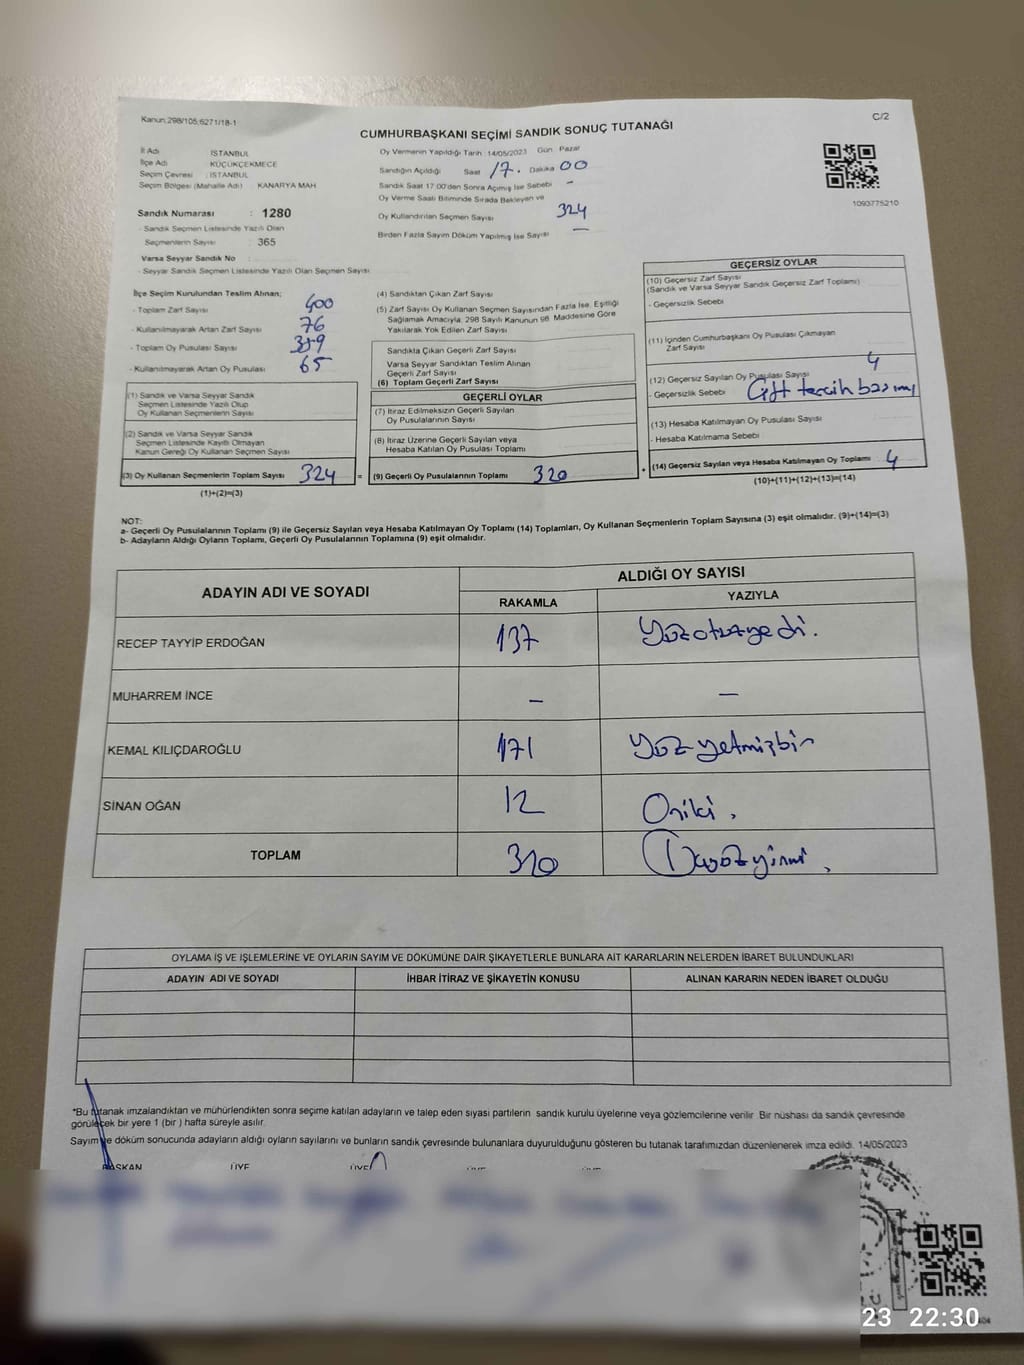 Kanun:298/105;6271/18-1
C/2
CUMHURBAŞKANI SEÇİMİ SANDIK SONUÇ TUTANAĞI
İl Adı İSTANBUL
İlçe Adı KÜÇÜKÇEKMECE
Seçim Çevresi : İSTANBUL
Seçim Bölgesi (Mahalle Adı) KANARYA MAH
Sandık Numarası : 1280
- Sandık Seçmen Listesinde Yazılı Olan
Seçmenlerin Sayısı : 365
Varsa Seyyar Sandık No
- Seyyar Sandık Seçmen Listesinde Yazılı Olan Seçmen Sayısı
Oy Vermenin Yapıldığı Tarih : 14/05/2023 Gün : Pazar
Sandığın Açıldığı Saat 17. Dakika 00
Sandık Saat 17.00'den Sonra Açımış İse Sebebi -
Oy Verme Saati Bitiminde Sırada Bekleyen ve
Oy Kullandırılan Seçmen Sayısı 324
Birden Fazla Sayım Döküm Yapılmış İse Sayısı -
1093775210
İlçe Seçim Kurulundan Teslim Alınan;
- Toplam Zarf Sayısı 400
- Kullanılmayarak Artan Zarf Sayısı 76
- Toplam Oy Pusulası Sayısı 389
- Kullanılmayarak Artan Oy Pusulası 65
(1) Sandık ve Varsa Seyyar Sandık
Seçmen Listesinde Yazılı Olup
Oy Kullanan Seçmenlerin Sayısı
(2) Sandık ve Varsa Seyyar Sandık
Seçmen Listesinde Kayıtlı Olmayan
Kanun Gereği Oy Kullanan Seçmen Sayısı
(3) Oy Kullanan Seçmenlerin Toplam Sayısı 324
(1)+(2)=(3)
=
(4) Sandıktan Çıkan Zarf Sayısı
(5) Zarf Sayısı Oy Kullanan Seçmen Sayısından Fazla İse, Eşitliği
Sağlamak Amacıyla, 298 Sayılı Kanunun 98. Maddesine Göre
Yakılarak Yok Edilen Zarf Sayısı
Sandıkta Çıkan Geçerli Zarf Sayısı
Varsa Seyyar Sandıktan Teslim Alınan
Geçerli Zarf Sayısı
(6) Toplam Geçerli Zarf Sayısı
GEÇERLİ OYLAR
(7) İtiraz Edilmeksizin Geçerli Sayılan
Oy Pusulalarının Sayısı
(8) İtiraz Üzerine Geçerli Sayılan veya
Hesaba Katılan Oy Pusulası Toplamı
(9) Geçerli Oy Pusulalarının Toplamı 320
+
GEÇERSİZ OYLAR
(10) Geçersiz Zarf Sayısı
(Sandık ve Varsa Seyyar Sandık Geçersiz Zarf Toplamı)
- Geçersizlik Sebebi
(11) İçinden Cumhurbaşkanı Oy Pusulası Çıkmayan
Zarf Sayısı
(12) Geçersiz Sayılan Oy Pusulası Sayısı 4
- Geçersizlik Sebebi Çift tercih basımı
(13) Hesaba Katılmayan Oy Pusulası Sayısı
- Hesaba Katılmama Sebebi
(14) Geçersiz Sayılan veya Hesaba Katılmayan Oy Toplamı 4
(10)+(11)+(12)+(13)=(14)
NOT:
a- Geçerli Oy Pusulalarının Toplamı (9) ile Geçersiz Sayılan veya Hesaba Katılmayan Oy Toplamı (14) Toplamları, Oy Kullanan Seçmenlerin Toplam Sayısına (3) eşit olmalıdır. (9)+(14)=(3)
b- Adayların Aldığı Oyların Toplamı, Geçerli Oy Pusulalarının Toplamına (9) eşit olmalıdır.
ADAYIN ADI VE SOYADI
ALDIĞI OY SAYISI
RAKAMLA YAZIYLA
RECEP TAYYİP ERDOĞAN 137 Yüzotuzyedi.
MUHARREM İNCE - -
KEMAL KILIÇDAROĞLU 171 Yüzyetmişbir
SİNAN OĞAN 12 Oniki.
TOPLAM 320 Üçyüzyirmi.
OYLAMA İŞ VE İŞLEMLERİNE VE OYLARIN SAYIM VE DÖKÜMÜNE DAİR ŞİKAYETLERLE BUNLARA AİT KARARLARIN NELERDEN İBARET BULUNDUKLARI
ADAYIN ADI VE SOYADI İHBAR İTİRAZ VE ŞİKAYETİN KONUSU ALINAN KARARIN NEDEN İBARET OLDUĞU
*Bu tutanak imzalandıktan ve mühürlendikten sonra seçime katılan adayların ve talep eden siyasi partilerin sandık kurulu üyelerine veya gözlemcilerine verilir. Bir nüshası da sandık çevresinde
görülecek bir yere 1 (bir) hafta süreyle asılır.
Sayım ve döküm sonucunda adayların aldığı oyların sayılarını ve bunların sandık çevresinde bulunanlara duyurulduğunu gösteren bu tutanak tarafımızdan düzenlenerek imza edildi. 14/05/2023
BAŞKAN ÜYE ÜYE
23 22:30